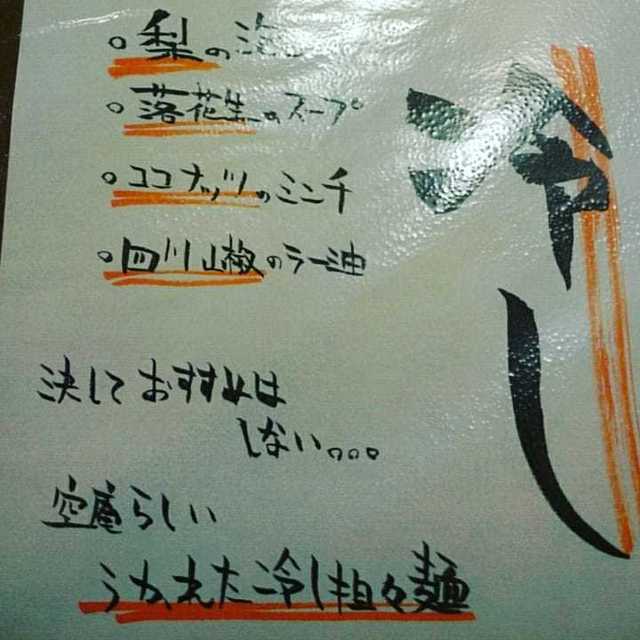 冷し
。梨の
。落花生のスープ
。ココナッツのミンチ
。四川山椒のラー油
決しておすすめは
しない。。。
空庵らしい
うかれた冷し担々麺